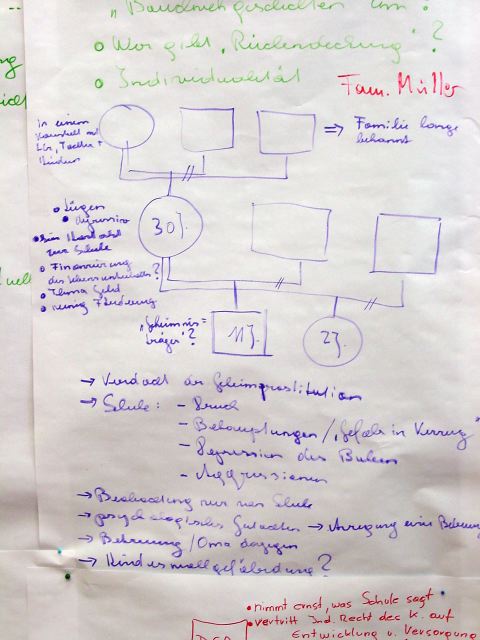 "Bauchwehgeschichten um?
• Wer gibt „Rückendeckung"?
• Individualität
Fam. Müller
In einem
Haushalt mit
Tochter +
Kindern
=> Familie lange
bekannt
• Lügen
• depressiv
zur Schule
• Finanzierung
des Lebensunterhaltes?
• Thema Geld
• wenig Förderung
30J.
„Geheimnis=
träger"?
11J.
2J.
→ Verdacht der Geheimprostitution
→ Schule: - Druck
- Behauptungen / „Gefahr in Verzug"
- Depression des Buben
- Aggressionen
→ Beobachtung nur von Schule
→ psychologisches Gutachten → Anregung eine Betreuung
→ Betreuung/Oma dagegen
→ Kindeswohlgefährdung?
• nimmt ernst, was Schule sagt
• vertritt Ind. Recht des K. auf
Entwicklung u. Versorgung